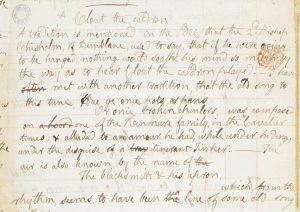 Clout the caldron
A tradition is mentioned in the Bee that the 2d Bishop
Chisholm, of Dunblane, used to say, that if he were going
to be hanged, nothing would sooth his mind so much by
the way as to hear Clout the caldron played. I have
often met with another tradition, that the old song to
this tune Hae ye onie pots or pans
Or onie broken chanlers, was compose
on one of the Kenmure family in the Cavalier
times; & alluded to an amour he had while under hiding,
under the disguise of a itinerant tinker. The
air is also known by the name of the
The blacksmith & his apron,
which from the
rhythm seems to have been line of some old song